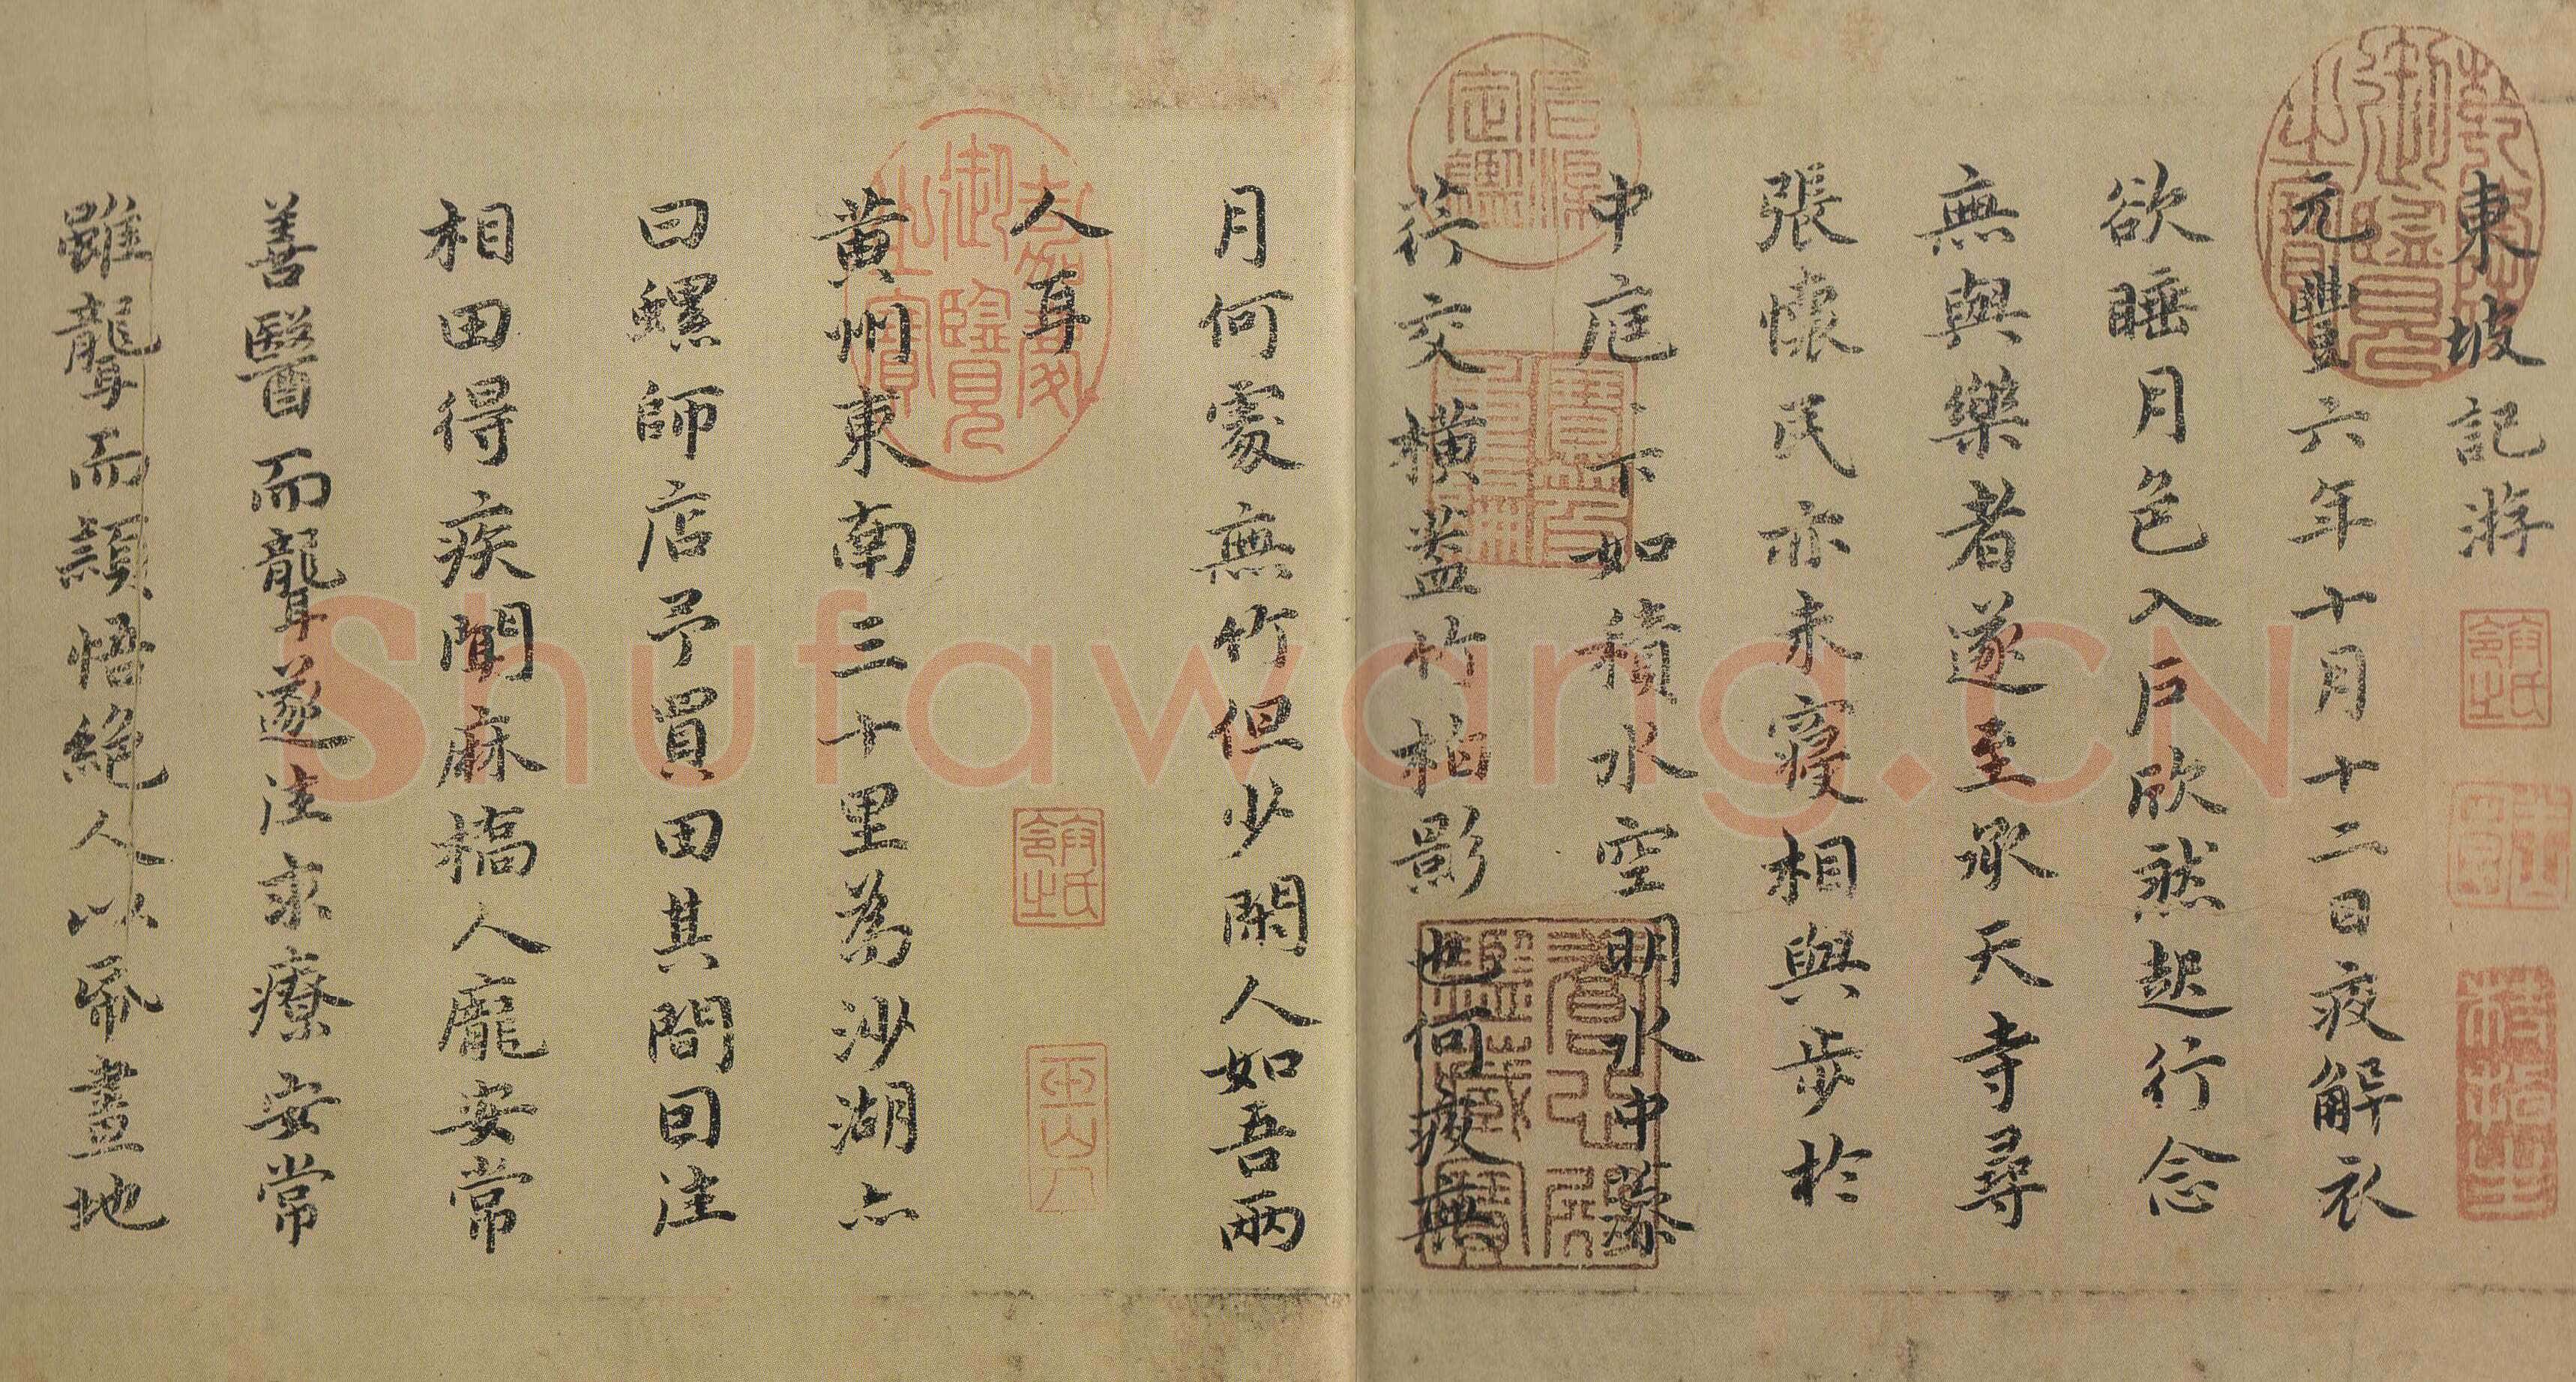 東坡記游
元豐六年十月十二日夜解衣
欲睡月色入戶欣然起行念
無與樂者遂至承天寺尋
張懷民亦未寢相與步於
中庭〻下如積水空明水中藻
荇交橫蓋竹柏影也何夜無
月何處無竹但少閑人如吾兩
人耳
黃州東南三十里為沙湖亦
曰螺師店予買田其間因往
相田得疾聞麻橋人龐安常
善醫而聾遂往求療安常
雖聾而穎悟絕人以紙畫地
乾隆御覽之寶
石渠定鑑
寶笈重編
養心殿鑑藏寶
嘉慶御覽之寶
Shufawang.CN